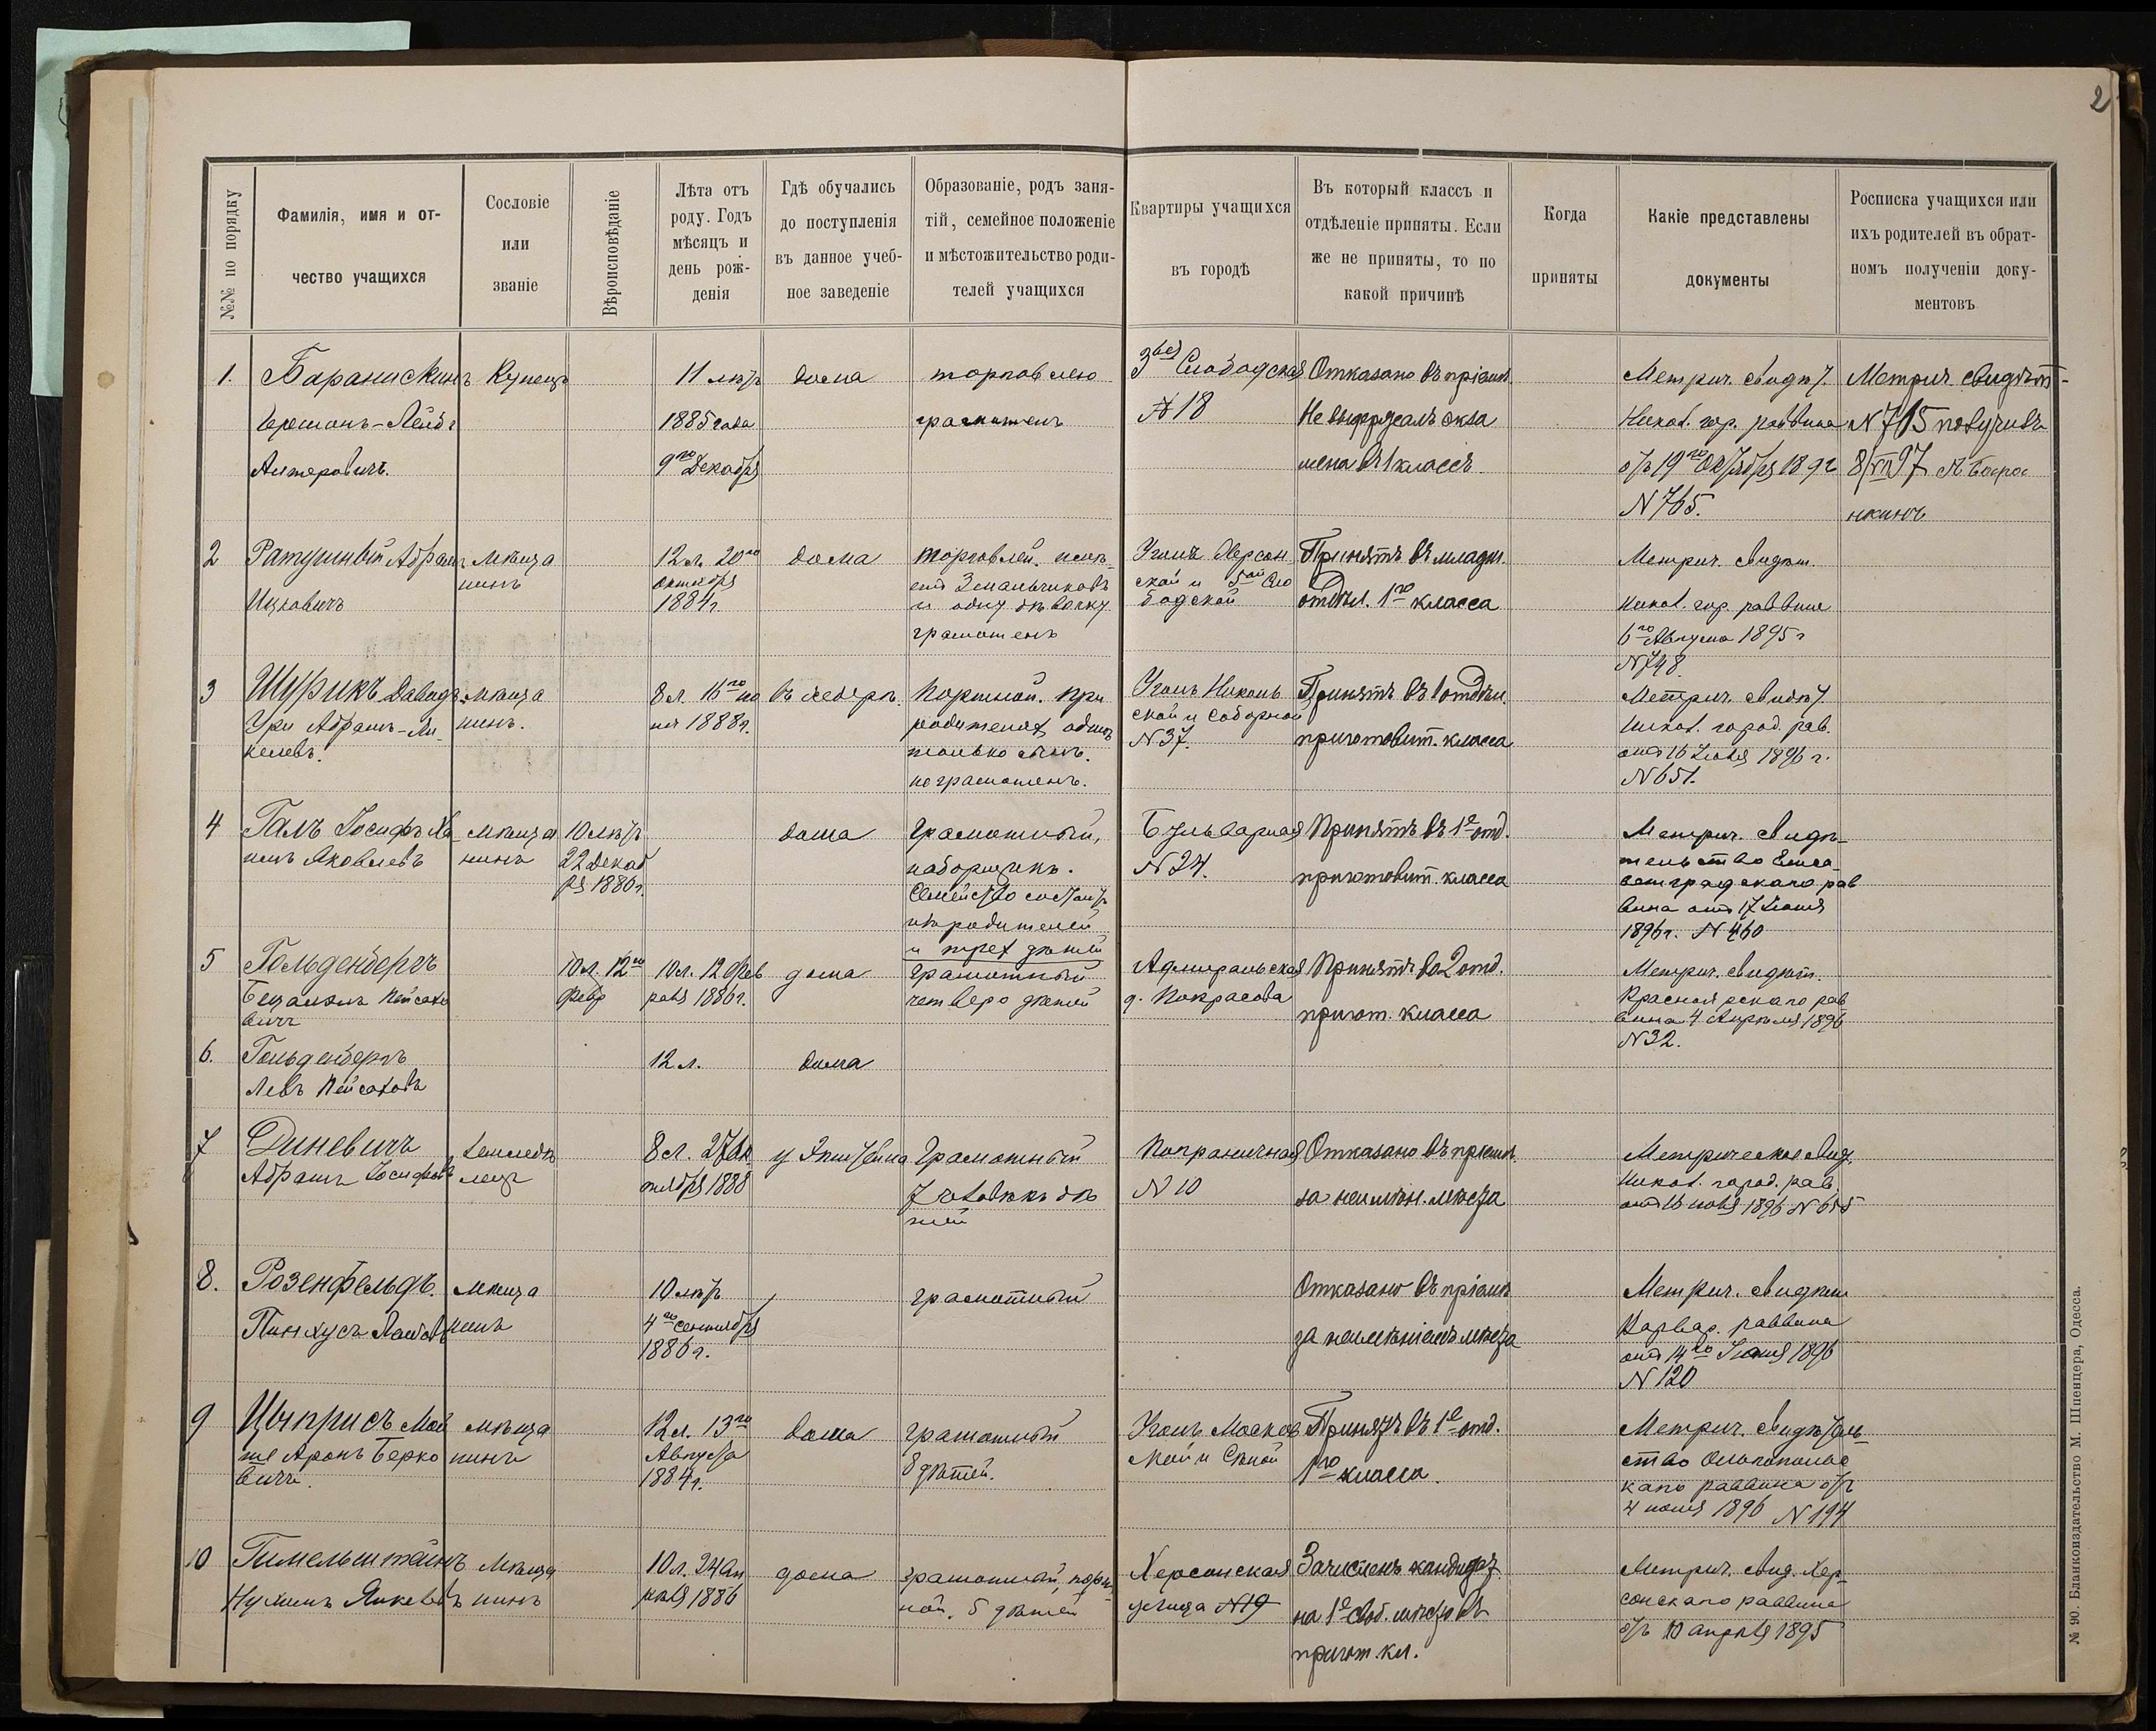 2
№№ по порядку
Фамилія, имя и от-
чество учащихся
Сословіе
или
званіе
Вѣроисповѣданіе
Лѣта отъ
роду. Годъ
мѣсяцъ и
день рож-
денія
Гдѣ обучались
до поступленія
въ данное учеб-
ное заведеніе
Образованіе, родъ заня-
тій, семейное положеніе
и мѣстожительство роди-
телей учащихся
Квартиры учащихся
въ городѣ
Въ который классъ и
отдѣленіе приняты. Если
же не приняты, то по
какой причинѣ
Когда
приняты
Какіе представлены
документы
Росписка учащихся или
ихъ родителей въ обрат-
номъ полученіи доку-
ментовъ
1.
Баранискинъ
Гершонъ-Лейбъ
Алтеровичъ.
Купецъ
11 лѣтъ
1885 года
9го Декабря
дома
торговлею
грамотенъ
3ья Слободская
№ 18
Отказано въ пріемѣ
Не выдержалъ экза
мена въ 1 классъ
Метрич. свидѣт.
Никол. гор. раввина
отъ 19го Октября 1892
N 765.
Метрич. свидѣт-
N 765 получилъ
8/VIII 97
2
Ратушный Абрам
Ицковичъ
мѣща
нинъ
12 л. 20го
октября
1884 г.
дома
торговлей. имѣ-
етъ 3 мальчиковъ
и одну дѣвочку
грамотенъ
Уголъ Херсон
ской и 5ой Сло
бодской
Принятъ въ младш.
отдѣл. 1го класса
Метрич. свидѣт.
Никол. гор. раввина
6го Августа 1895 г
N 748
3
Шурикъ Давидъ
Ури Абрамъ-Ми
келевъ.
мѣща
нинъ.
8 л. 16го ію
ля 1888 г.
въ хедерѣ.
Портной. При
родителяхъ одинъ
только сынъ.
неграмотенъ.
Уголъ Николь
ской и Соборной
N 37.
Принятъ въ 1 отдѣл.
приготовит. класса
Метрич. свидѣт.
Никол. город. рав.
отъ 16 Іюля 1896 г.
N 651.
4
Галъ Іосифъ Ха
имъ Яковлевъ
мѣща
нинъ
10 лѣтъ
22 Декаб
ря 1886 г.
дома
Грамотный,
наборщикъ.
Семейство состоитъ
изъ родителей
и трех дѣтей
Бульварная
N 24.
Принятъ въ 1е отд.
приготовит. класса
Метрич. свидѣ-
тельство Елиса
ветградскаго рав
вина отъ 17 Іюня
1896 г. N 460
5
Гольденбергъ
Бецалелъ Пейсахо
вичъ
10 л. 12го
февр
10 л. 12 Фев
раля 1886 г.
дома
грамотный
четверо дѣтей
Адмиральская
д. Покрасова
Принятъ во 2 отд.
пригот. класса
Метрич. свидѣт.
рав
вина 4 Апрѣля 1896
N 32.
6.
Гольденбергъ
Левъ Пейсаховъ
12 л.
дома
7
Диневичъ
Абрамъ Іосифовъ
земледѣ
лецъ
8 л. 27 Ок
тября 1888
у Эпштейна
Грамотный
7 человѣкъ дѣ
тей
Пограничная
N 10
Отказано въ пріемѣ
за неимѣн. мѣста
Метрическое свид.
Никол. город. рав.
отъ 16 іюля 1896 N 655
8.
Розенфельдъ.
Пинхусъ
мѣща
нинъ
10 лѣтъ
4го Сентября
1886 г.
грамотный
Отказано въ пріемѣ
за неимѣніемъ мѣста
Метрич. свидѣт
раввина
отъ 14го Іюня 1896
N 120
9
Цыприсъ Мой
ше Аронъ Берко
вичъ.
мѣща
нинъ
12 л. 13го
Августа
1884 г.
дома
грамотный
8 дѣтей.
Уголъ Москов
ской и Сѣнной
Принятъ въ 1е отд.
1го класса.
Метрич. свидѣтель-
ство Ольгопольс
каго раввина отъ
4 іюня 1896 N 194
10
Гимельштейнъ
Нухимъ Янкелевъ
мѣща
нинъ
10 л. 24 Ап
рѣля 1886
дома
грамотный, порт
ной, 5 дѣтей
Херсонская
улица N 19
Зачисленъ кандидат.
на 1е своб. мѣсто въ
пригот. кл.
Метрич. свид. Хер-
сонскаго раввина
отъ 10 апрѣля 1895
№ 90. Бланкоиздательство М. Шпенцера, Одесса.